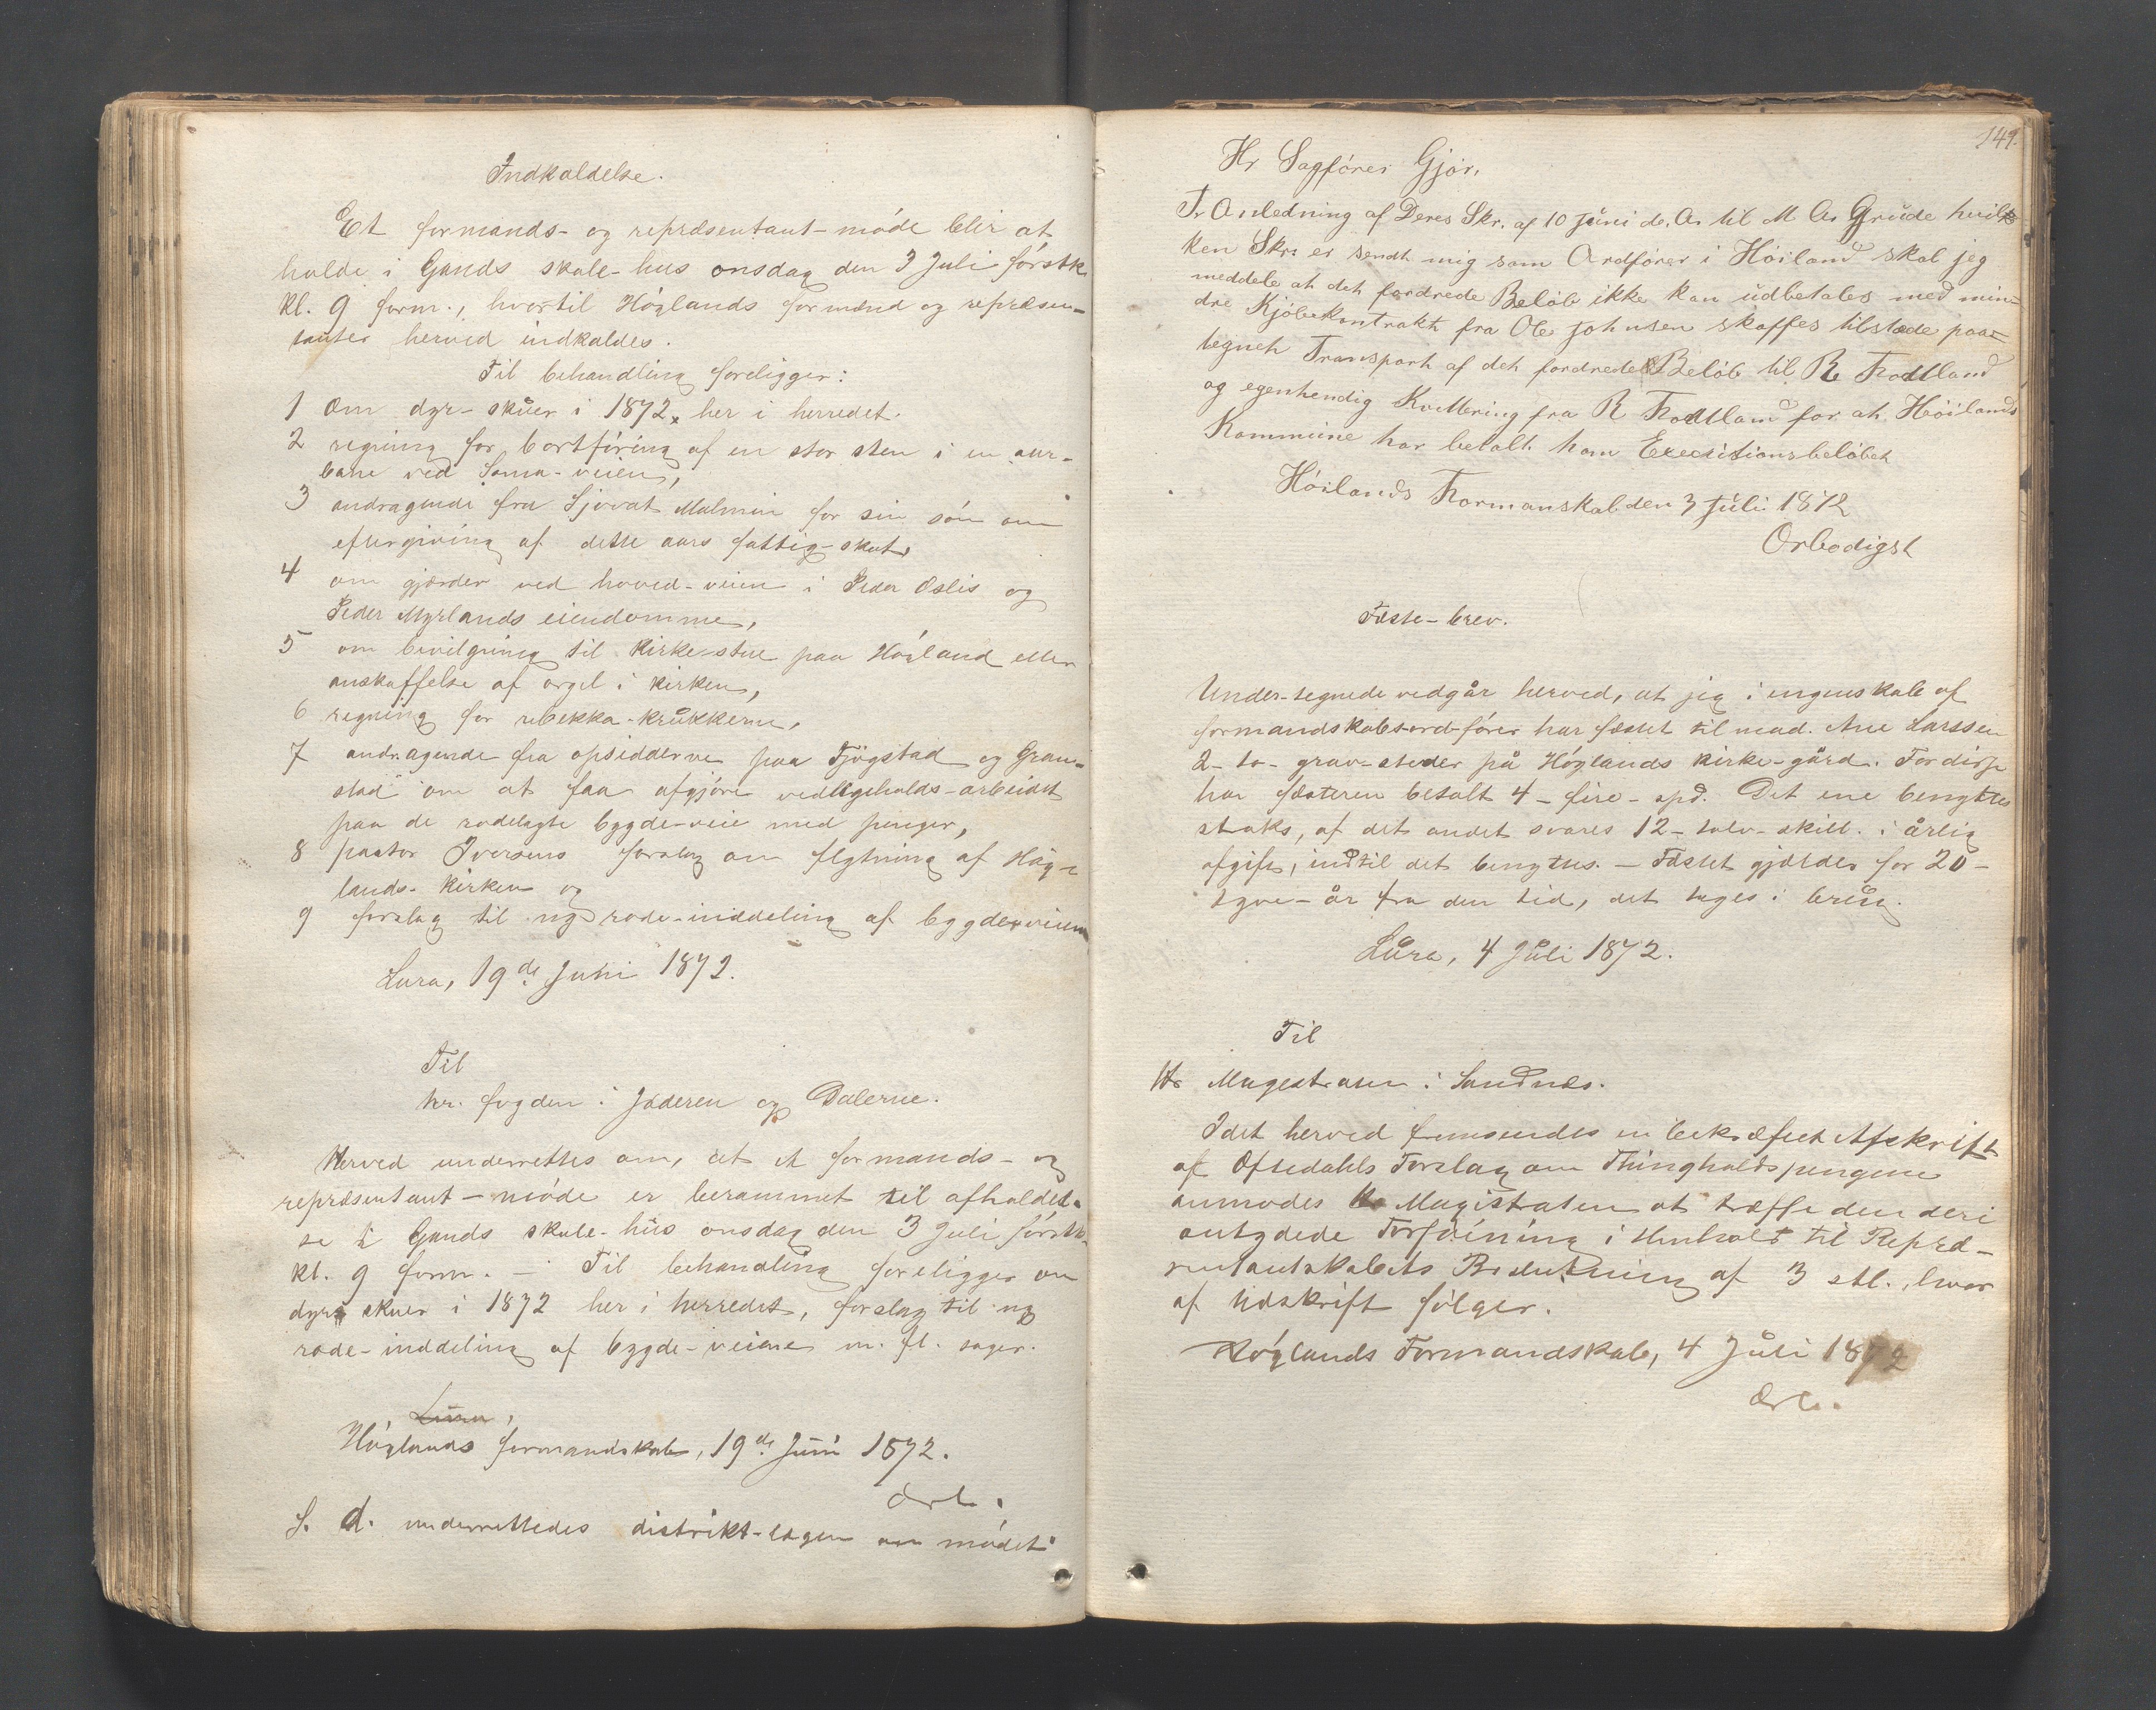 Indkaldelse.
Et formands- og repræsentant-møde blir at
holde i Gands skole-hus onsdag den 3 Juli førstk.
kl. 9 form., hvortil Høylands formænd og repræsen-
tanter herved indkaldes.
Til behandling foreligger:
1 Om dyr-skuer i 1872 her i herredet.
2 regning for bortføring af en stor sten i en aur-
bane ved Soma-veien,
3 andragende fra Sjovat Malmin for sin søn om
eftergivning af dette aars fattig-skat,
4 om gjærder ved hoved-veien i Peder Oslis og
Peder Myrlands eiendomme,
5 om bevilgning til Kirke-stue paa Høyland eller
anskaffelse af orgel i kirken,
6 regning for rebekka-krukkerne,
7 andragende fra opsidderne paa Fjøgstad og Gran-
stad om at faa afgjøre vedligeholds-arbeidet
paa de rodelagte bygde-veie med penger,
8 pastor Iversens forslag om flytning af Høy-
lands-kirken og
9 forslag til ny rode-inddeling af bygdeveiene
Lura, 19de Juni 1872.
Til
hr. fogden i Jæderen og Dalerne.
Herved underrettes om, at et formands- og
repræsentant-møde er berammet til afholdel-
se i Gands skole-hus onsdag den 3 Juli førstk.
kl. 9 form. – Til behandling foreligger om
dyrskuer i 1872 her i herredet, forslag til ny
rode-inddeling af bygde-veiene m. fl. sager.
Lura,
Høylands formandskab, 19de Juni 1872.
ærb.
S. d. underrettedes distrikt-lægen om mødet.
149.
Hr Sagfører Gjør,
I Anledning af Deres Skr. af 10 Juni d. A. til M A Grude hvil-
ken Skr: er sendt mig som Ordfører i Høiland skal jeg
meddele at det fordrede Beløb ikke kan udbetales med min-
dre Kjøbekontrakt fra Ole Johnsen skaffes tilstede paa-
tegnet Transport af det fordrede Beløb til R Frøtland
og egenhendig Kvittering fra R Frøtland for at Høilands
Kommune har betalt ham Execusionsbeløbet
Høilands Formanskab den 3 Juli 1872
Ærbødigst
Fæste-brev.
Under-tegnede vedgår herved, at jeg i engenskab af
formandskabs-ord-fører har fæstet til mad. Ane Larssen
2- to- grav-steder på Høylands kirke-gård. For disse
har fæsteren betalt 4 – fire – spd. Det ene benyttes
straks, af det andet svares 12- tolv- skill. i årlig
afgift, indtil det benyttes. – Fæstet gjælder for 20 –
tyve – år fra den tid, det tages i brug.
Lura, 4 Juli 1872.
Til
Hr Magestraten i Sandnæs.
Idet herved fremsendes en bekræftet Afskrift
af Oftedahls Forslag om Thingholdspengene
anmodes Hr Magistraten at træffe den deri
antydede Forføining i Henhold til Repræ-
sentantskabets Beslutning af 3 dl., hvor
af Udskrift følger.
Høylands Formandskab, 4 Juli 1872
ærb.